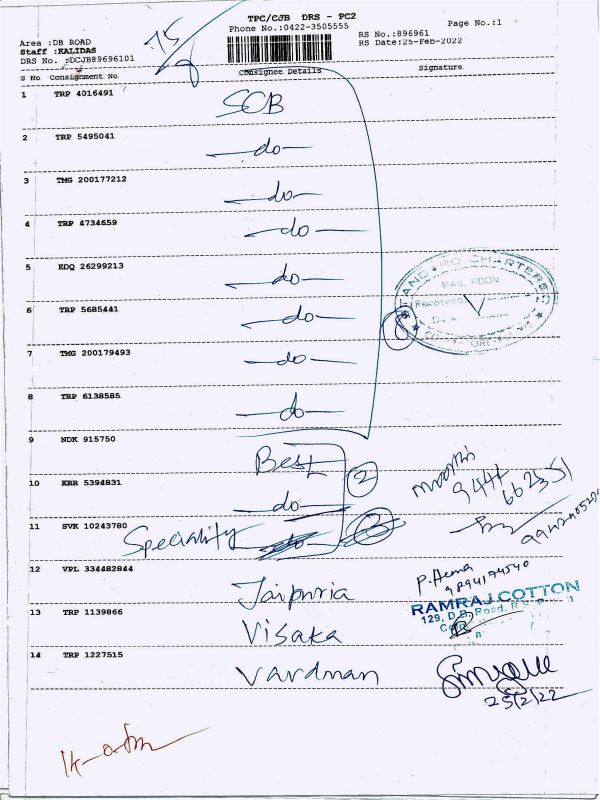 TPC/CJB DRS - PC2
Phone No.:0422-3505555
Page No.:1
Area :DB ROAD
Staff :KALIDAS
DRS No. :DCJB89696101
RS No.:896961
RS Date:25-Feb-2022
75
S No Consignment No Consignee Details Signature
1 TRP 4016491 SCB
2 TRP 5495041 —do—
3 TMG 200177212 —do—
4 TRP 4734659 —do—
5 EDQ 26299213 —do—
6 TRP 5685441 —do—
7 TMG 200179493 —do—
8 TRP 6138585 —do—
STANDARD CHARTERED
MAIL ROOM
Received
8
9 NDK 915750 Best
10 KRR 5394831 —do— 2
9444
662351
11 SVK 10243780 Speciality
12 VPL 334482844 Jaipuria
P. Hema
9894174540
RAMRAJ COTTON
129, D.B. Road, R.S. Puram
13 TRP 1139866 Visaka
14 TRP 1227515 Vardman
25/2/22